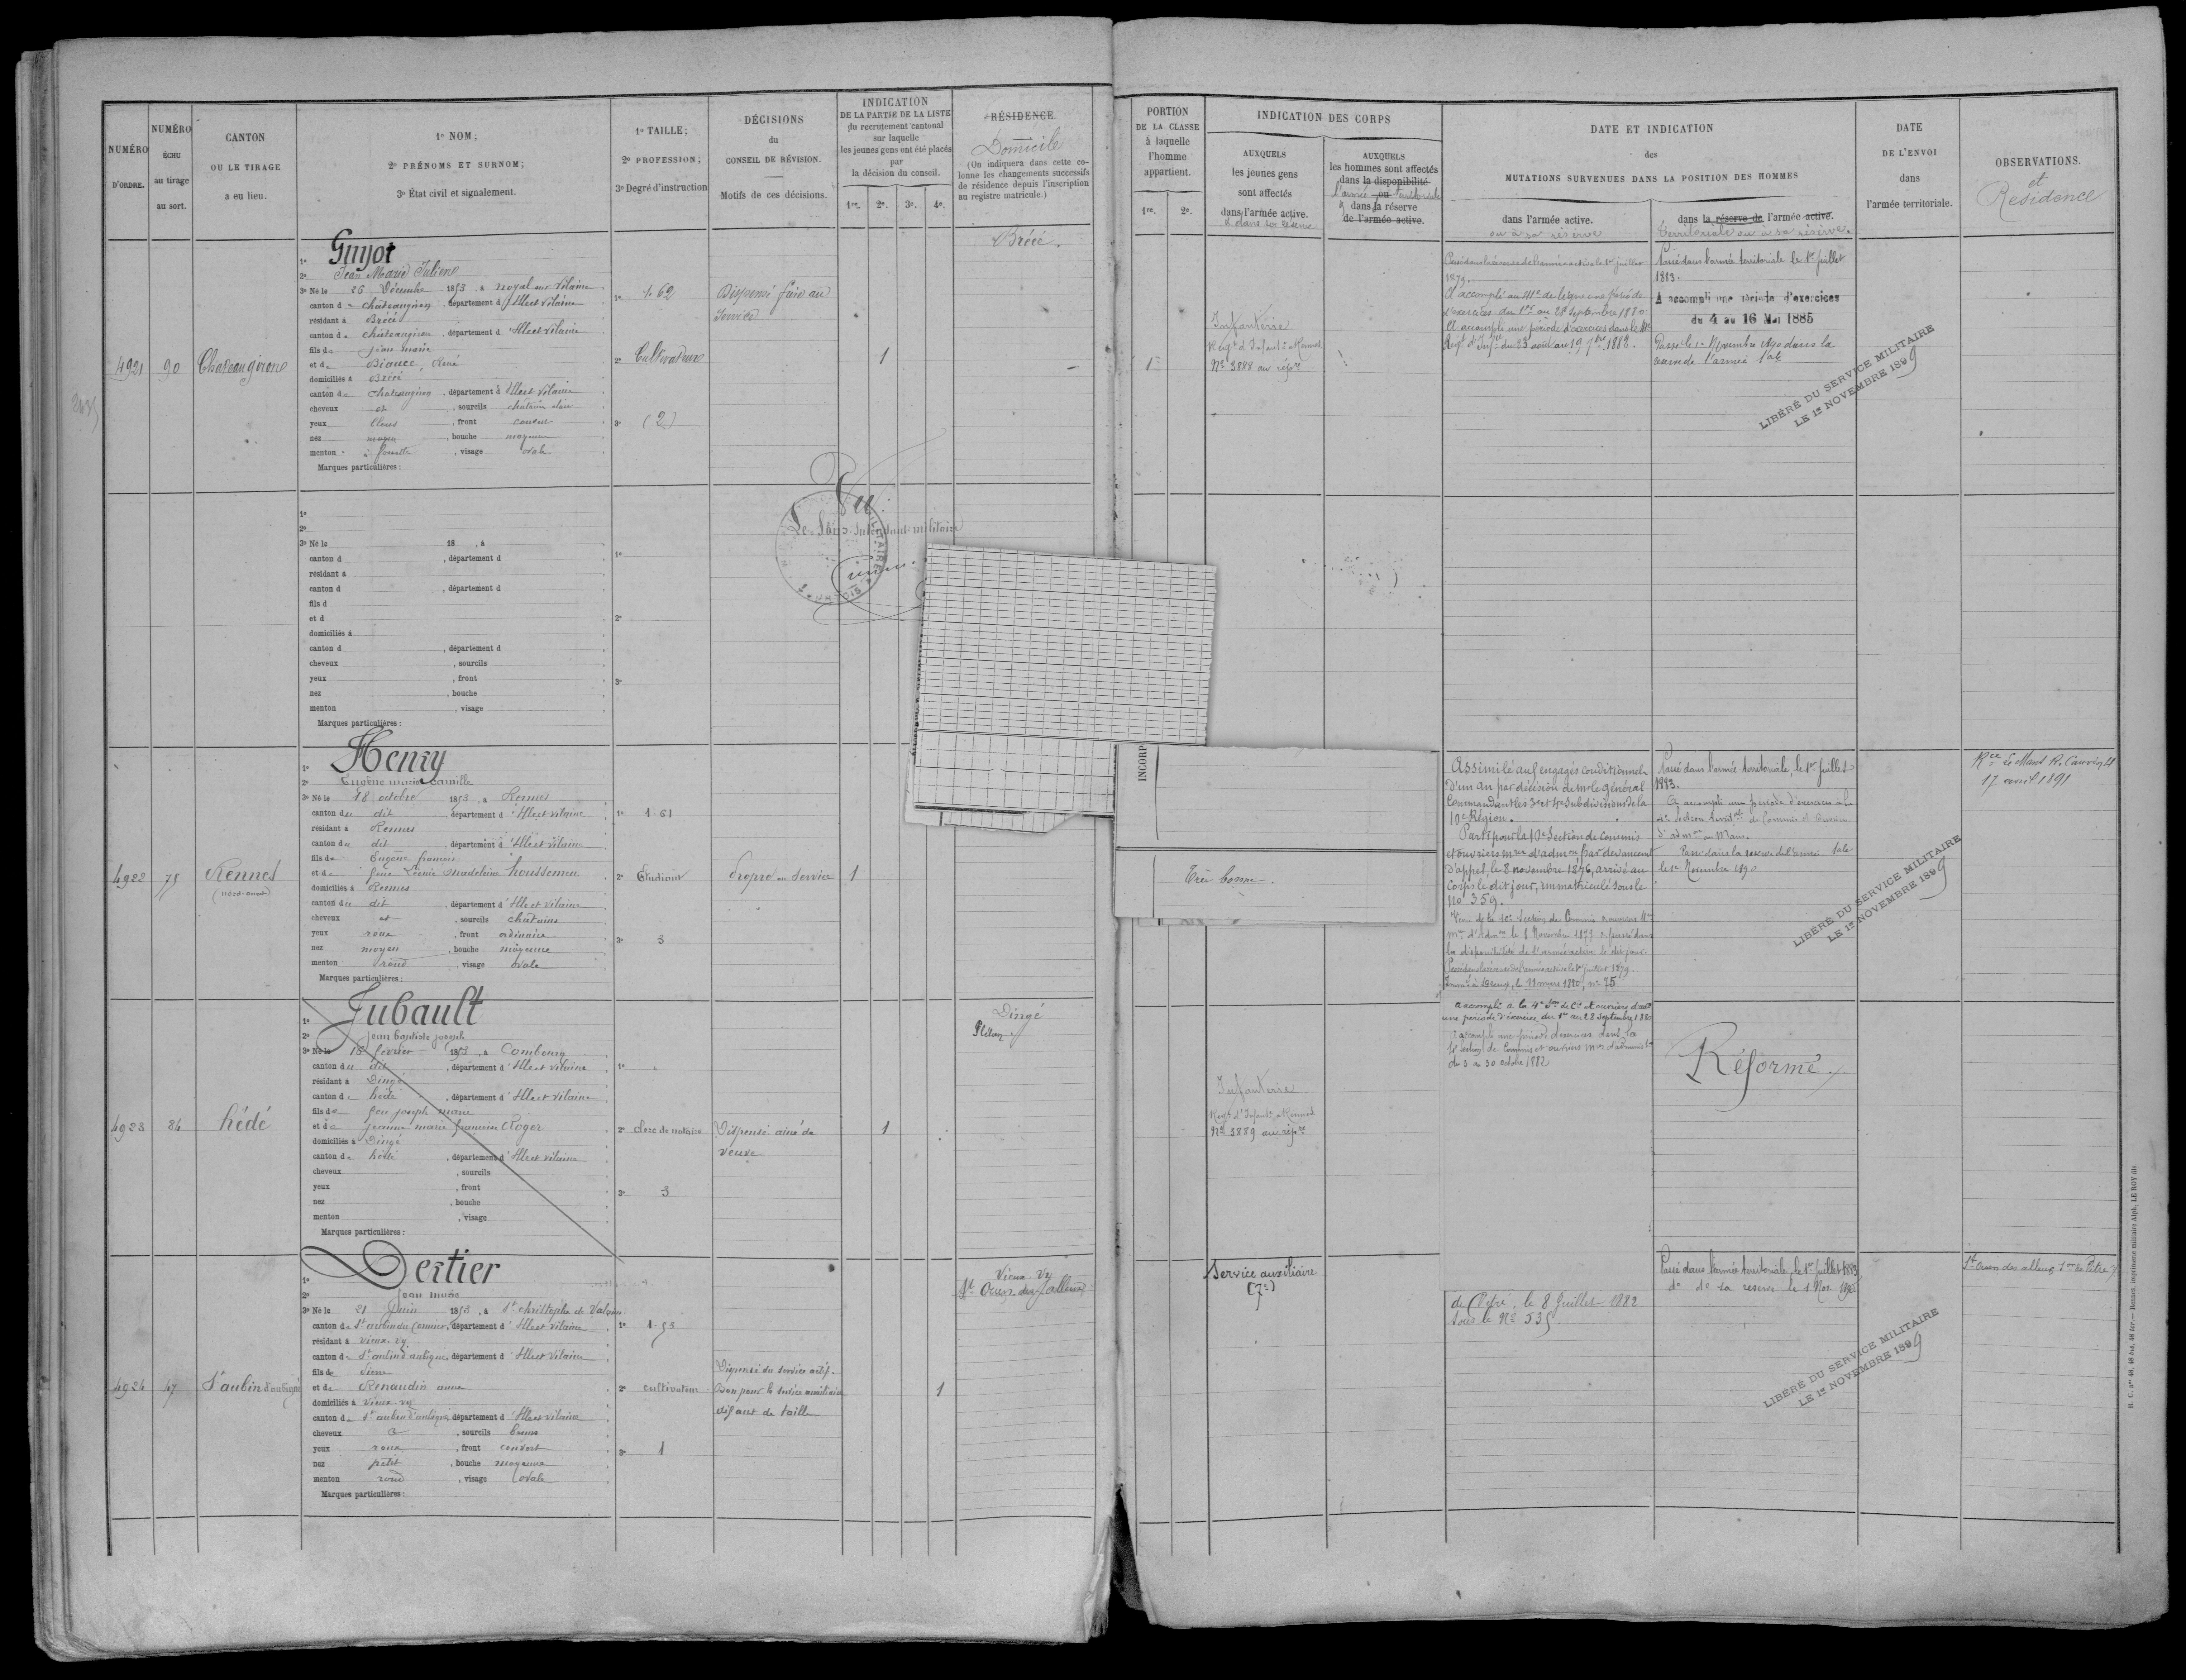 NUMÉRO
D'ORDRE.
NUMÉRO
ÉCHU
au tirage
au sort.
CANTON
OU LE TIRAGE
a eu lieu.
1º NOM;
2º PRÉNOMS ET SURNOM;
3º État civil et signalement.
1º TAILLE;
2º PROFESSION;
3º Degré d'instruction
DÉCISIONS
du
CONSEIL DE RÉVISION.
Motifs de ces décisions.
INDICATION
DE LA PARTIE DE LA LISTE
du recrutement cantonal
sur laquelle
les jeunes gens ont été placés
par
la décision du conseil.
1re. 2e. 3e. 4e.
RÉSIDENCE.
Domicile
(On indiquera dans cette co-
lonne les changements successifs
de résidence depuis l'inscription
au registre matricule.)
PORTION
DE LA CLASSE
à laquelle
l'homme
appartient.
1re. 2e.
INDICATION DES CORPS
AUXQUELS
les jeunes gens
sont affectés
dans l'armée active.
et dans la réserve
AUXQUELS
les hommes sont affectés
dans la disponibilité
l'armée ou territoriale
dans la réserve
de l'armée active.
DATE ET INDICATION
des
MUTATIONS SURVENUES DANS LA POSITION DES HOMMES
dans l'armée active.
ou à sa réserve
dans la réserve de l'armée active.
territoriale ou à sa réserve.
DATE
DE L'ENVOI
dans
l'armée territoriale.
OBSERVATIONS.
et
Residence
4921 90 Chateaugirone
1º Guyot
2º Jean Marie Julien
3º Né le 26 Décembre 1853, à Noyal sur Vilaine
canton de chateaugiron, département d'Ille et Vilaine
résidant à Brécé
canton de chateaugiron, département d'Ille et Vilaine
fils de Jean marie
et de René
domiciliés à Brécé
canton de chateaugiron, département d'Ille et Vilaine
cheveux et, sourcils châtain clair
yeux bleus, front
nez moyen, bouche moyenne
menton à fossette, visage ovale
Marques particulières :
1º 1.62
2º Cultivateur
3º (2)
Dispensé frère au
Service
1
Brécé.
1
Infanterie
Regt d'Infant. Rennes
Nº 3888 au répre
Passé dans la réserve de l'armée active le 1er juillet
1879.
A accompli au 41e de ligne une période
d'exercices du 1er au 28 septembre 1880.
A accompli une période d'exercices dans le
Regt d'Infie du 23 août au 19 7bre 1882.
Passé dans l'armée territoriale le 1er juillet
1883.
A accompli une période d'exercices
du 4 au 16 Mai 1885
Passé le 1er Novembre 1890 dans la
réserve de l'armée tale
LIBÉRÉ DU SERVICE MILITAIRE
LE 1er NOVEMBRE 1899
1º
2º
3º Né le 18 , à
canton d , département d
résidant à
canton d , département d
fils d
et d
domiciliés à
canton d , département d
cheveux , sourcils
yeux , front
nez , bouche
menton , visage
Marques particulières :
1º
2º
3º
Vu :
Le Sous-Intendant militaire
INCORP
Très bonne.
4922 75 Rennes
(nord-ouest)
1º Henry
2º Eugène marie camille
3º Né le 18 octobre 1853, à Rennes
canton du dit, département d'Ille et vilaine
résidant à Rennes
canton du dit, département d'Ille et Vilaine
fils de Eugène françois
et de feue Léonie madeleine houssemen
domiciliés à Rennes
canton du dit, département d'Ille et Vilaine
cheveux et, sourcils chatains
yeux roux, front ordinaire
nez moyen, bouche moyenne
menton rond, visage ovale
Marques particulières :
1º 1.61
2º Etudiant
3º 3
Propre au Service
1
Assimilé aux engagés conditionnels
d'un an par décision de Mr le Général
Commandant les 3e et 4e Subdivisions de la
10e Région.
Parti pour la 10e Section de commis
et ouvriers mres d'admon par devancemt
d'appel, le 8 novembre 1876, arrivé au
corps le dit jour, immatriculé sous le
No 359.
la disponibilité de l'armée active le dit jour.
Passé dans la réserve de l'armée active le 1er juillet 1879.
A accompli à la 4e Son de Cs et ouvriers d'adon
une période d'exercice du 1er au 28 septembre 1880
A accompli une période d'exercices dans la
section de Commis et ouvriers mres d'administon
du 3 au 30 octobre 1882
Passé dans l'armée territoriale, le 1er Juillet
1883.
A accompli une période d'exercices à la
4e Section
d'admon au Mans.
Passé dans la réserve de l'armée tale
le 1er Novembre 1890
LIBÉRÉ DU SERVICE MILITAIRE
LE 1er NOVEMBRE 1899
Rce Le Mans R.
17 avril 1891
4923 84 hédé
1º Jubault
2º Jean baptiste joseph
3º Né le 18 février 1853, à Combourg
canton du dit, département d'Ille et vilaine
résidant à Dingé
canton de hédé, département d'Ille et Vilaine
fils de feu joseph marie
et de jeanne marie françoise Roger
domiciliés à Dingé
canton de hédé, département d'Ille et vilaine
cheveux , sourcils
yeux , front
nez , bouche
menton , visage
Marques particulières :
1º
2º clerc de notaire
3º 3
Dispensé ainé de
veuve
1
Dingé
Plélan
Infanterie
Regt d'Infant. Rennes
Nº 3889 au répre
Réformé
4924 47 St aubin d'aubigné
1º Dertier
2º Jean marie
3º Né le 21 Juin 1853, à St christophe de Valains
canton de St aubin du Cormier, département d'Ille et Vilaine
résidant à Vieux-vy
canton de St aubin d'aubigné, département d'Ille et Vilaine
fils de Pierre
et de Renaudin anne
domiciliés à Vieux-vy
canton de St aubin d'aubigné, département d'Ille et vilaine
cheveux , sourcils bruns
yeux roux, front couvert
nez petit, bouche moyenne
menton rond, visage ovale
Marques particulières :
1º 1.53
2º cultivateur
3º 1
Dispensé du service actif.
Bon pour le service auxiliaire
défaut de taille
1
Vieux-Vy
St Ouen des alleux
Service auxiliaire
(7e)
de Vitré, le 8 Juillet 1882
sous le Nº 535
Passé dans l'armée territoriale, le 1er Juillet 1883
do do la reserve le 1 Nov. 1890
LIBÉRÉ DU SERVICE MILITAIRE
LE 1er NOVEMBRE 1899
St Ouen des alleux
N. C. nos 48, 48 bis, 48 ter.— Rennes, imprimerie militaire Alph. LE ROY fils